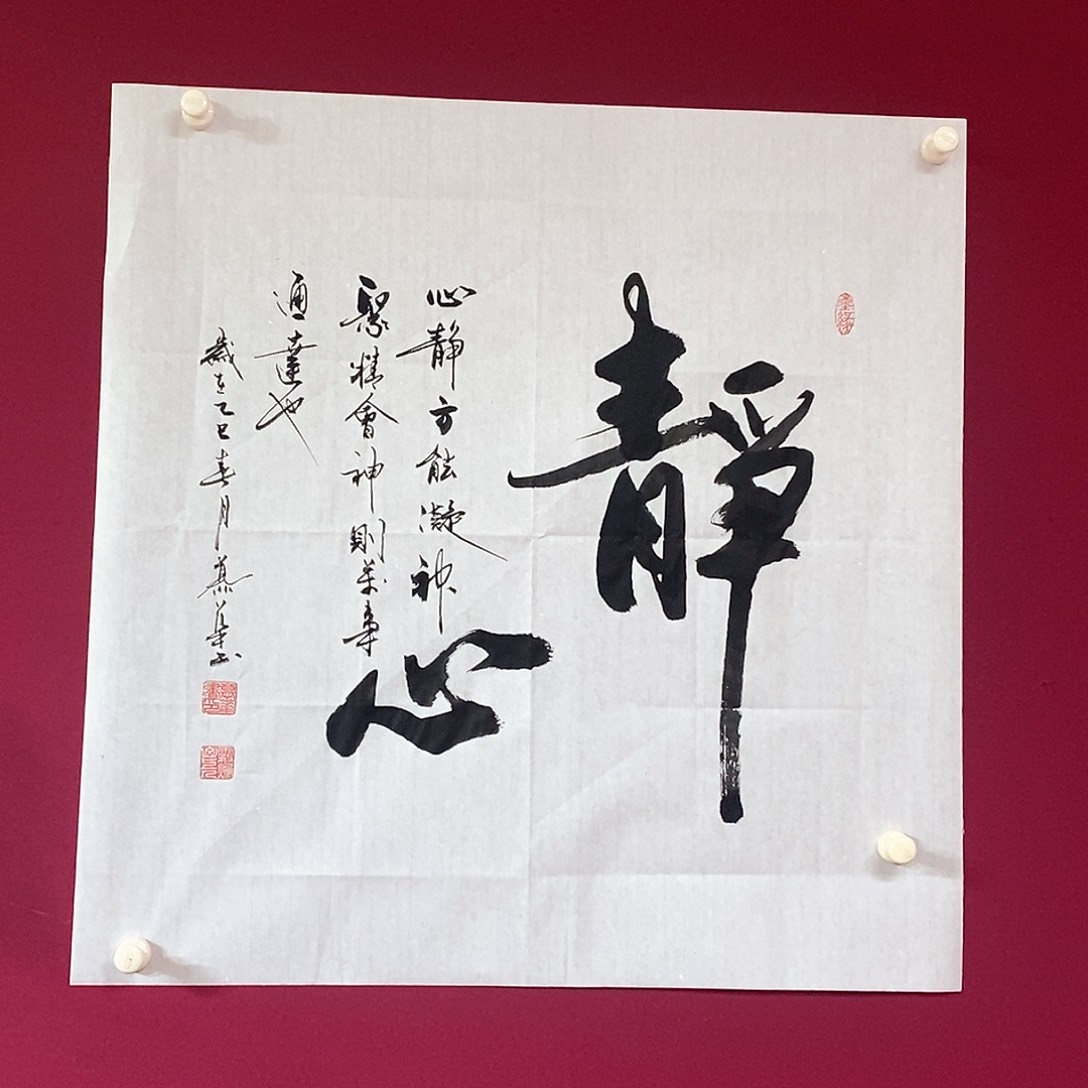 靜
心
心靜方能凝神
聚精會神則萬事
通達也
歲在乙巳春月慕華书